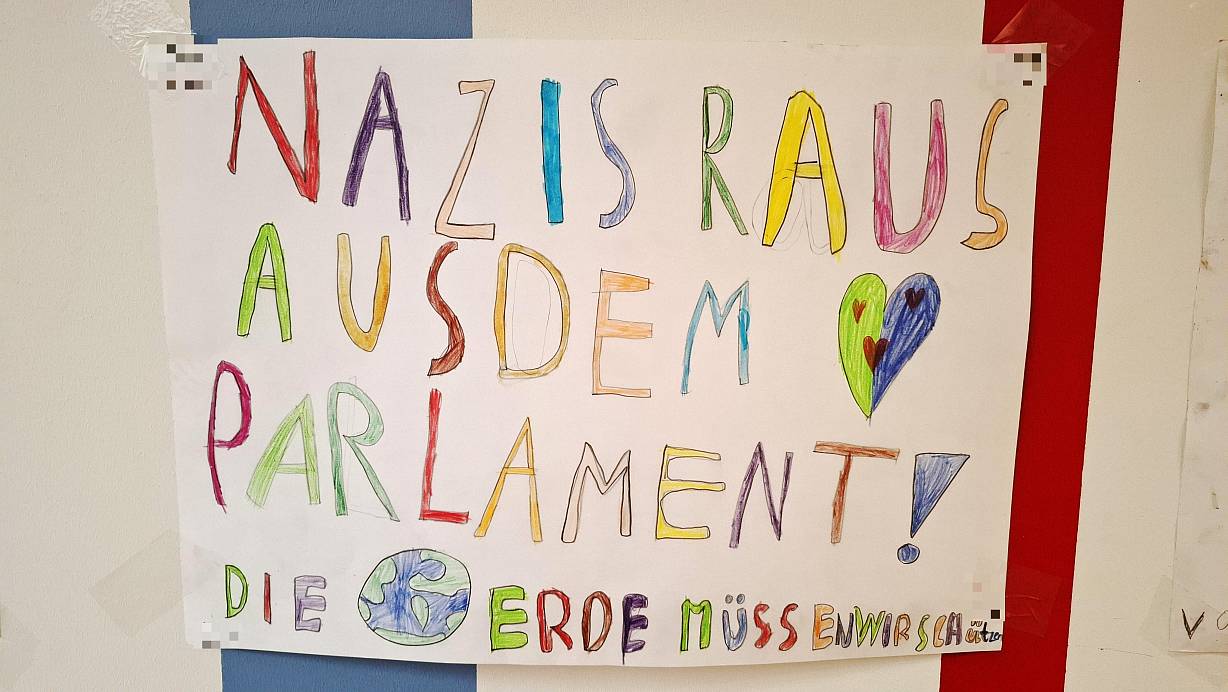 NAZIS RAUS
AUSDEM
PARLAMENT!
DIE ERDE MÜSSENWIRSCHAützen